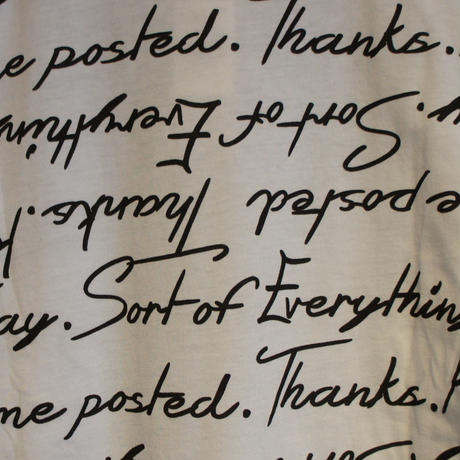 me posted. Thanks.
. Sort of Everything
e posted Thanks.
ay. Sort of Everything
me posted. Thanks.